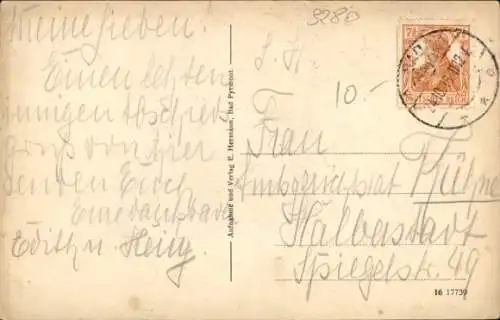 Meine Lieben!
Einen letzten
innigen Abschieds
gruss von hier
senden Euch
Eure dankbaren
Edith u. Heinz.
Aufnahme und Verlag E. Hermann, Bad Pyrmont.
3280
10.-
S. H.
Frau
Amtsgerichtsrat
Halberstadt
Spiegelstr. 49
16 17739